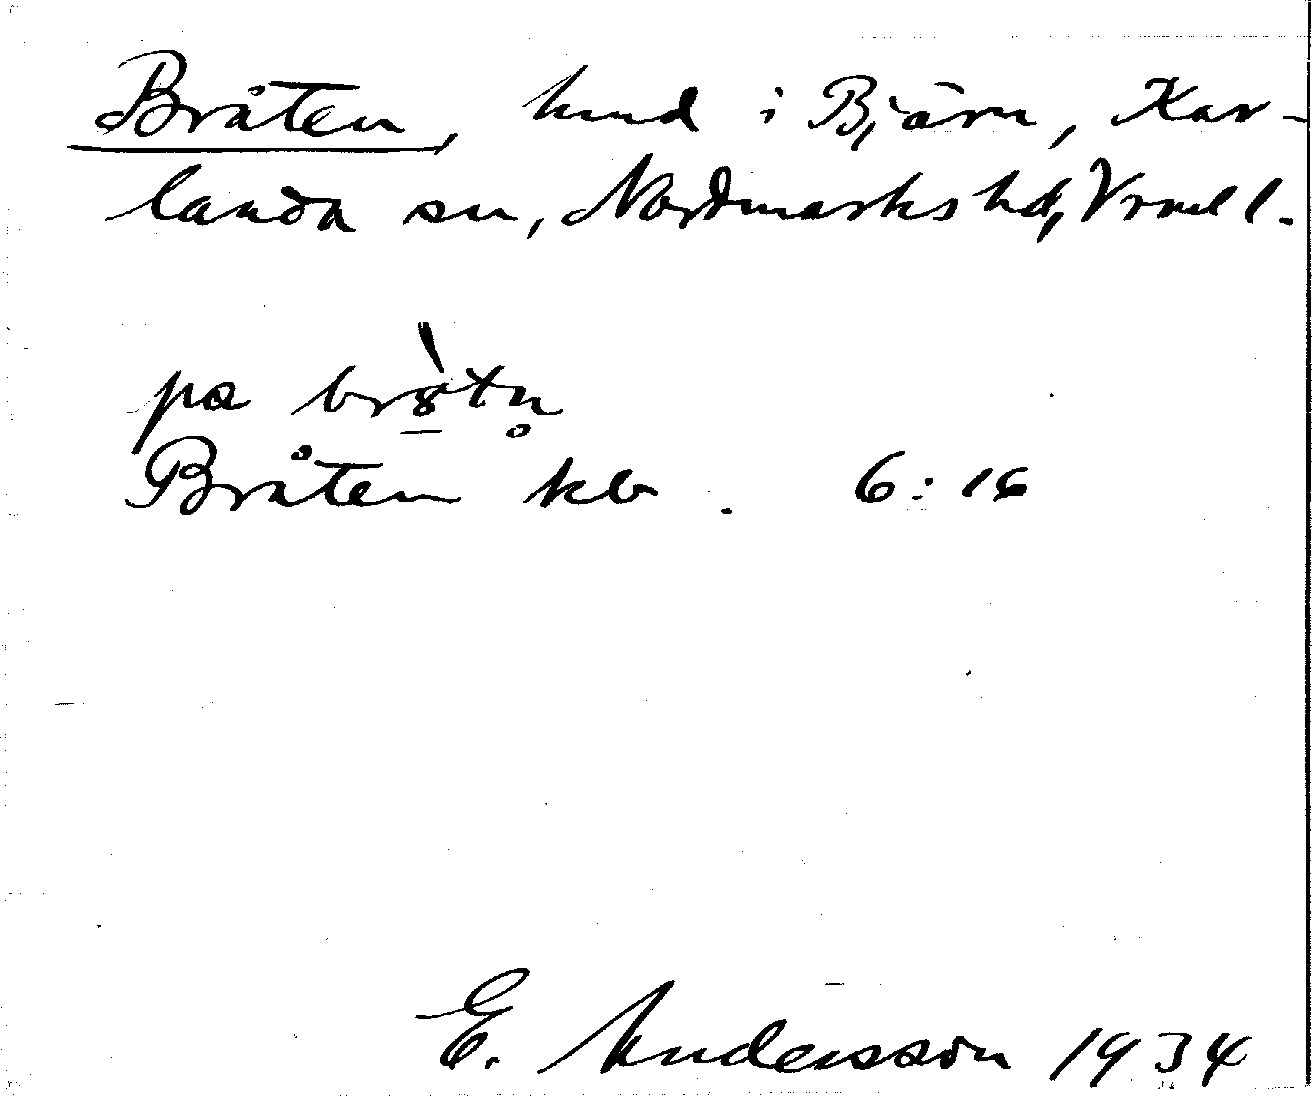 Bråten, hmd i Bjärn, Kar-
landa sn, Nordmarks hd, Vrml.
pa br
Bråten kb. 6:16
E. Andersson 1934